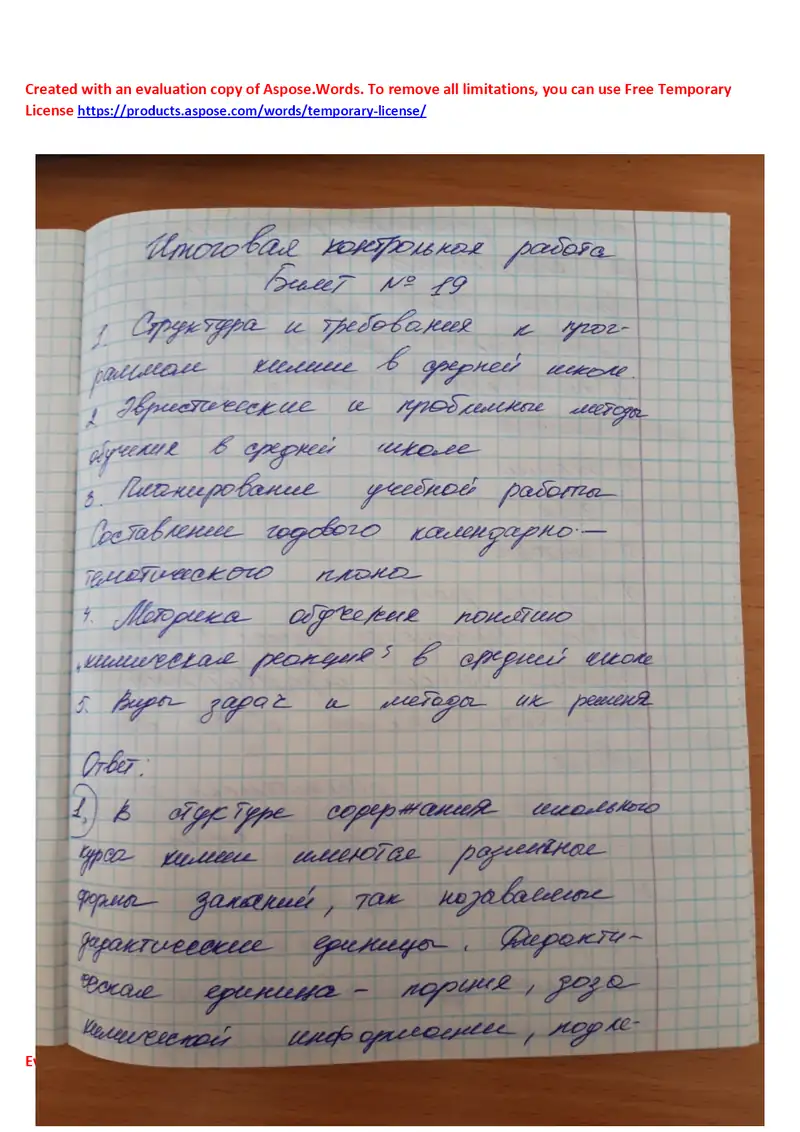 Created with an evaluation copy of Aspose.Words. To remove all limitations, you can use Free Temporary
License https://products.aspose.com/words/temporary-license/
Итоговая контрольная работа
Билет № 19
1. Структура и требования к прог-
раммам химии в средней школе.
2. Эвристические и проблемные методы
обучения в средней школе
3. Планирование учебной работы
Составлении годового календарно-
тематического плана
4. Методика обучения понятию
„химическая реакция" в средней школе
5. Виды задач и методы их решения
Ответ:
1. В стуктуре содержания школьного
курса химии имеются различные
формы , так называемые
дидактические единицы. Дидакти-
ческая единица - порция, доза
химической информации, подле-
Ev